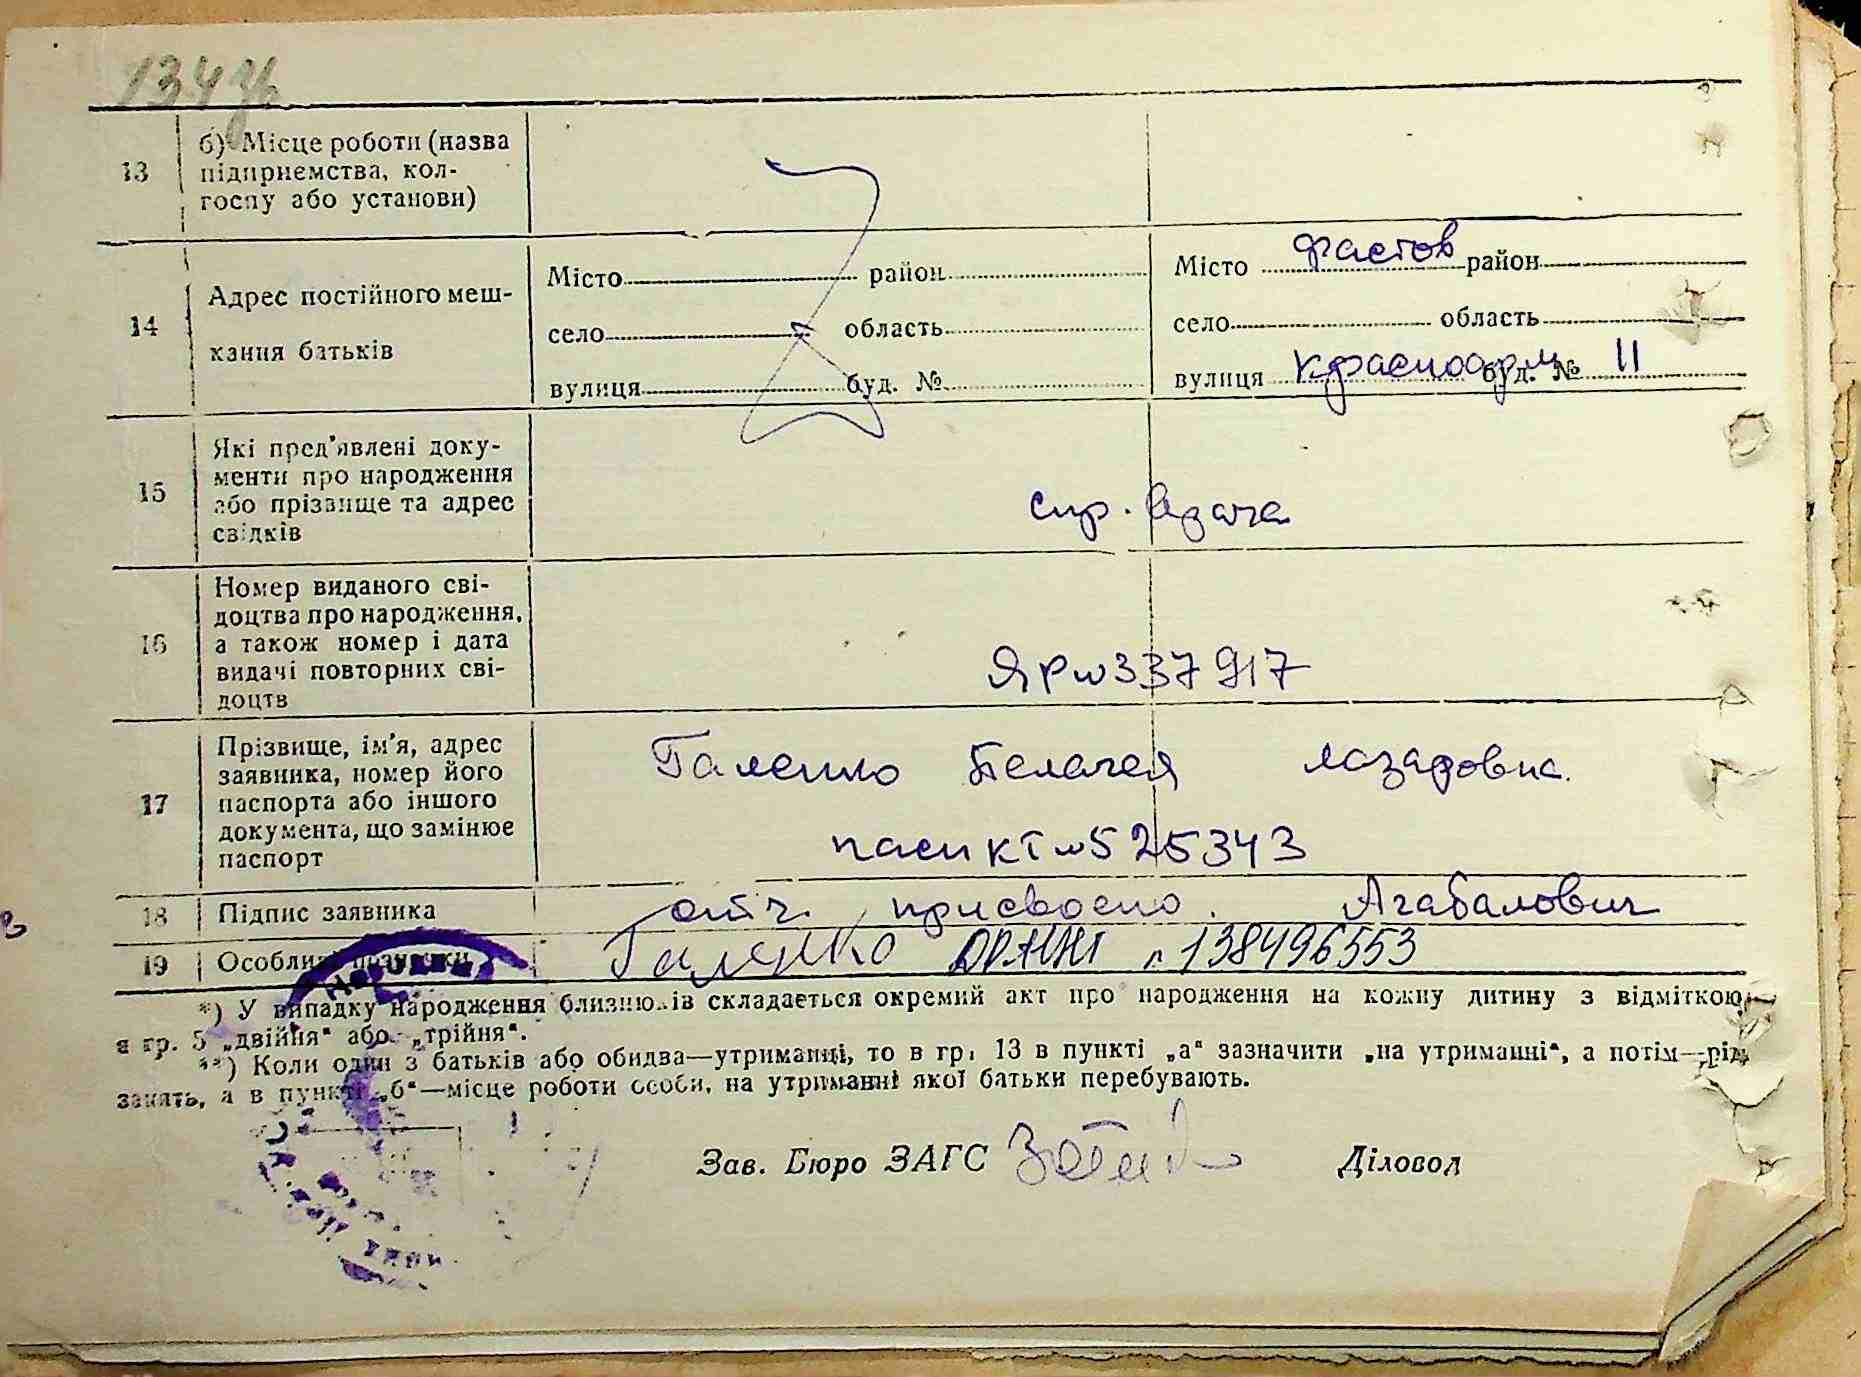 134
13
б) Місце роботи (назва
підприємства, кол-
госпу або установи)
14
Адрес постійного меш-
кання батьків
Місто район
село область
вулиця буд. №
Місто Фастов район
село область
вулиця Красноарм буд. № 11
15
Які пред'явлені доку-
менти про народження
або прізвище та адрес
свідків
спр. врача
16
Номер виданого сві-
доцтва про народження,
а також номер і дата
видачі повторних сві-
доцтв
ЯР № 337917
17
Прізвище, ім'я, адрес
заявника, номер його
паспорта або іншого
документа, що замінює
паспорт
Галенко Пелагея Лазаровна
пасп КТ № 525343
18
Підпис заявника
отч. присвоено. Агабалович
19
Особливі
Галенко 138496553
*) У випадку народження близнюків складається окремий акт про народження на кожну дитину з відміткою
в гр. 5 „двійня“ або „трійня“.
**) Коли один з батьків або обидва—утриманці, то в гр. 13 в пункті „а“ зазначити „на утриманні“, а потім—рід
занять, а в пункті „б“—місце роботи особи, на утриманні якої батьки перебувають.
Зав. Бюро ЗАГС Діловод